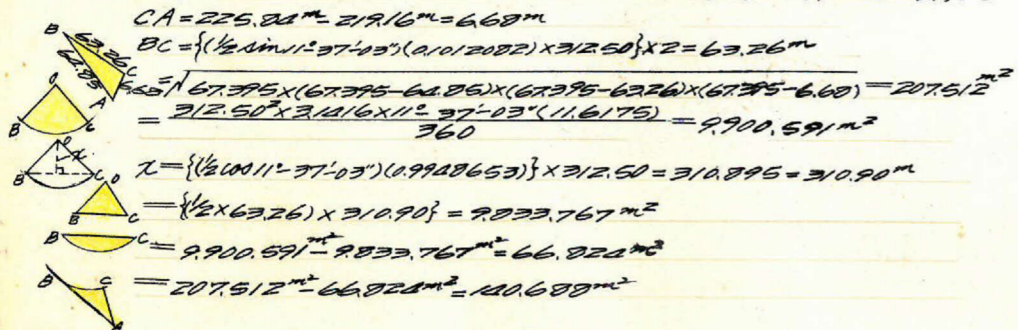 CA = 225.84m - 219.16m = 6.68m
BC = {(1/2 sin 11°-37'-03")(0.1012082) × 312.50} × 2 = 63.26m
B 63.26 C 64.85 6.68 A = √67.395×(67.395-64.85)×(67.395-63.26)×(67.395-6.68) = 207.512m²
O B C = 312.50² × 3.1416 × 11°-37'-03" (11.6175) / 360 = 9.900.591m²
O x h B C x = {(1/2 cos 11°-37'-03")(0.9948653)} × 312.50 = 310.895 = 310.90m
O B C = {(1/2 × 63.26) × 310.90} = 9.833.767m²
B C = 9.900.591m² - 9.833.767m² = 66.824m²
B C A = 207.512m² - 66.824m² = 140.688m²